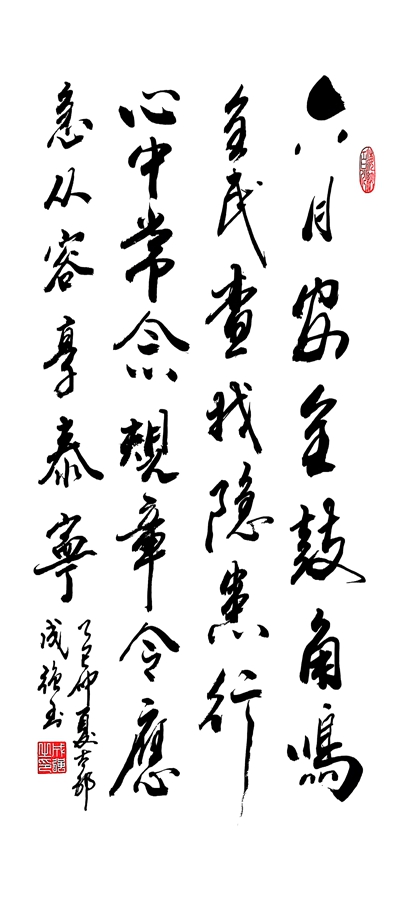 六月安全鼓角鸣
全民查找隐患行
心中常念规章令应
急从容享泰宁
乙巳仲夏古邹
成强书